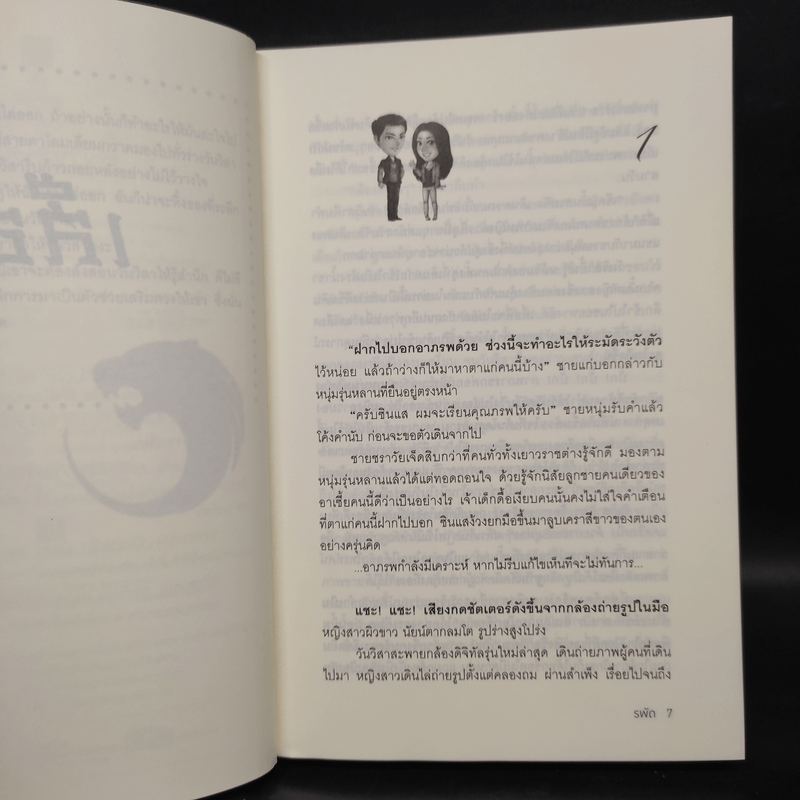 1
"ฝากไปบอกอาภรพด้วย ช่วงนี้จะทำอะไรให้ระมัดระวังตัว
ไว้หน่อย แล้วถ้าว่างก็ให้มาหาตาแก่คนนี้บ้าง" ชายแก่บอกกล่าวกับ
หนุ่มรุ่นหลานที่ยืนอยู่ตรงหน้า
"ครับซินแส ผมจะเรียนคุณภรพให้ครับ" ชายหนุ่มรับคำแล้ว
โค้งคำนับ ก่อนจะขอตัวเดินจากไป
ชายชราวัยเจ็ดสิบกว่าที่คนทั่วทั้งเยาวราชต่างรู้จักดี มองตาม
หนุ่มรุ่นหลานแล้วได้แต่ทอดถอนใจ ด้วยรู้จักนิสัยลูกชายคนเดียวของ
อาเซี้ยคนนี้ดีว่าเป็นอย่างไร เจ้าเด็กดื้อเงียบคนนั้นคงไม่ใส่ใจคำเตือน
ที่ตาแก่คนนี้ฝากไปบอก ซินแสง้วงยกมือขึ้นมาลูบเคราสีขาวของตนเอง
อย่างครุ่นคิด
...อาภรพกำลังมีเคราะห์ หากไม่รีบแก้ไขเห็นทีจะไม่ทันการ...
แชะ! แชะ! เสียงกดชัตเตอร์ดังขึ้นจากกล้องถ่ายรูปในมือ
หญิงสาวผิวขาว นัยน์ตากลมโต รูปร่างสูงโปร่ง
วันวิสาสะพายกล้องดิจิทัลรุ่นใหม่ล่าสุด เดินถ่ายภาพผู้คนที่เดิน
ไปมา หญิงสาวเดินไล่ถ่ายรูปตั้งแต่คลองถม ผ่านสำเพ็ง เรื่อยไปจนถึง
รพัด 7